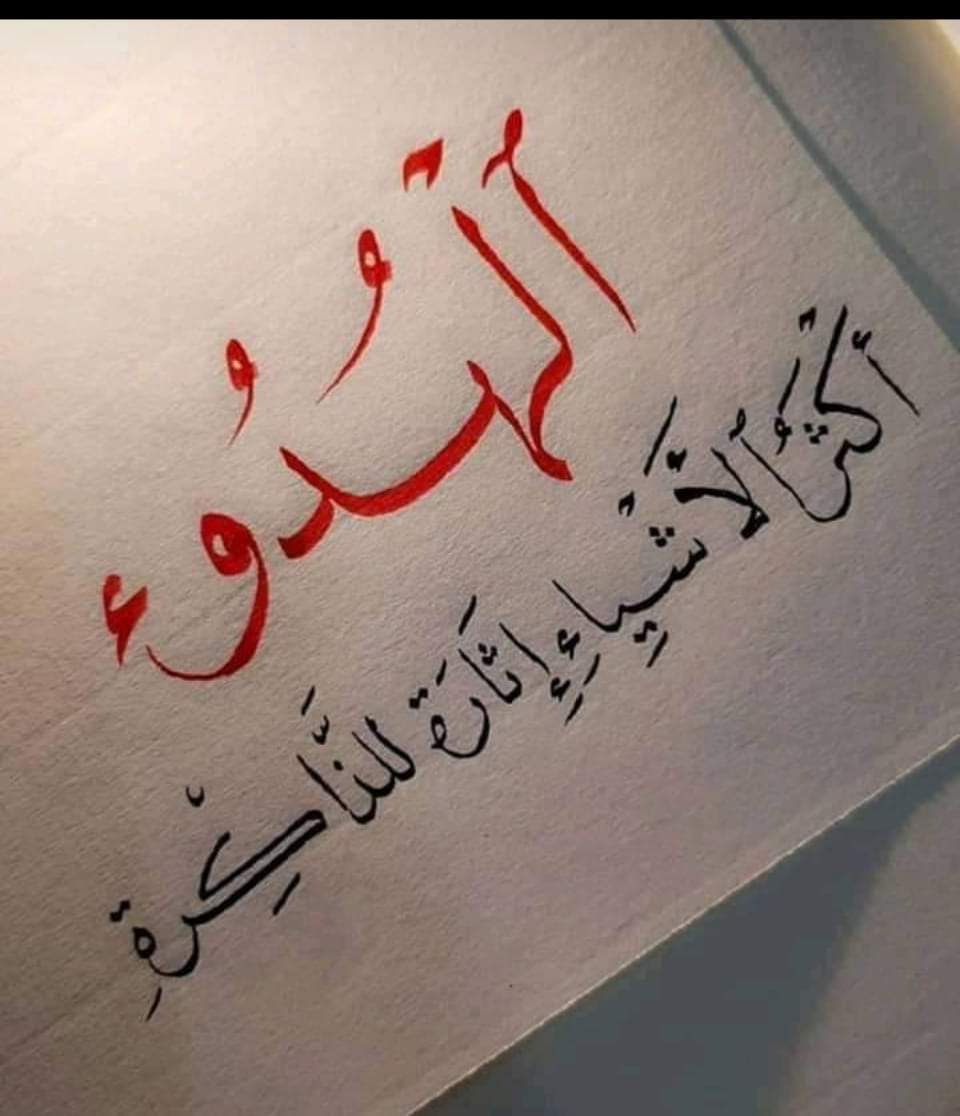 الْهُدُوء
أكْثَرُ ألأَشْيَاءِ إثَارَة للذَّاكِرْةِ